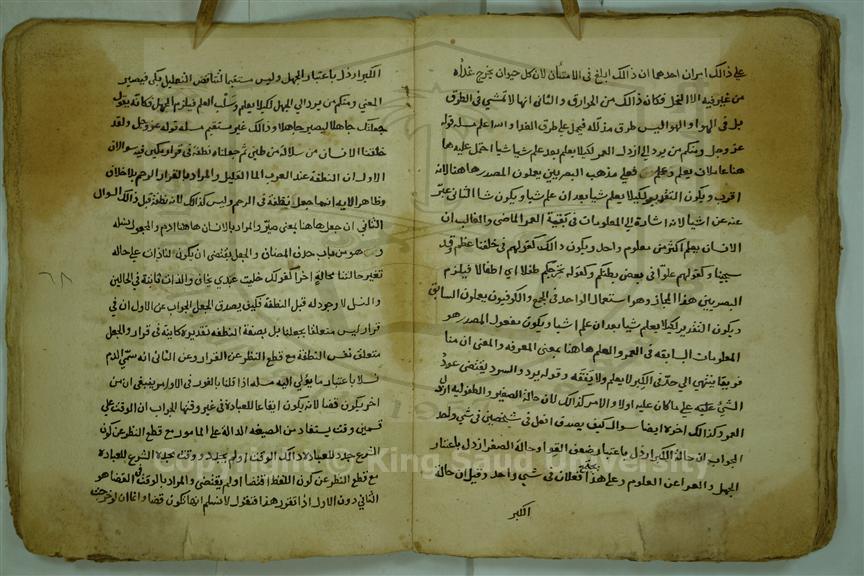 على ذالك امران احدهما ان ذالك ابلغ في الامتنان لان كل حيوان يخرج غذاه
من غير فيه الا النحل فكانه ذالك من الخوارق والثاني انها لا تمشي في الطرق
بل في الهوا والهوا ليس طرق مذلله فيحمل على طرق الغدا والله اعلم مسله قوله
عز وجل ومنكم من يرد الى ارذل العمر لكيلا يعلم بعد علم شيا شيا احتمل عليه ها
هنا عاملان يعلم وعلم فعلى مذهب البصريين يعملون المصدر هاهنا لانه
اقرب ويكون التقدير لكيلا يعلم شيا بعد ان علم شيا ويكون شيا الثاني عبر
عنه عن اشيا لانه اشارة الى المعلومات في بقية العمر الماضي والغالب ان
الانسان يعلم اكثر من معلوم واحد ويكون ذالك كقولهم في حلقنا عظم وقد
شجينا وكقولهم كلوا في بعض بطنكم وكقوله يخرجكم طفلا اي اطفالا فيلزم
البصريين هذا المجاز وهو استعمال الواحد في الجمع والكوفيون يعملون السابق
ويكون التقدير لكيلا يعلم شيا بعد ان علم اشيا ويكون مفعول المصدر هو
المعلومات السابقه في العمر والعلم هاهنا بمعنى المعرفه والمعنى ان منا
فريقا ينتهي الى حد في الكبر لا يعلم ولا يفقه وقوله يرد والرد يقتضي عود
الشي عليه على ما كان عليه اولا والامر كذالك لان حالة الصغر والطفوليه ارذل
العمر كذالك اخره ايضا سوال كيف يصدق افعل في شيئين في شي واحد
الجواب ان حالة الكبر ارذل باعتبار ضعف القوا وحالة الصغر ارذل باعتبار
الجهل والعرو عن العلوم وعلى هذا يجتمع افعلان في شي واحد وقيل ان حالة
الكبر
الكبر ارذل باعتبار الجهل وليس مستقيما لتناقض التعليل فكي فيصير
المعنى ومنكم من يرد الى الجهل لكيلا يعلم وسلب العلم فيلزم الجهل فكانه يقول
جعلتك جاهلا ليصير جاهلا وذالك غير مستقيم مسله قوله عز وجل ولقد
خلقنا الانسان من سلالة من طين ثم جعلناه نطفة في قرار مكين فيه سوالان
الاول ان النطفة عند العرب الما القليل والمراد بالقرار الرحم بلا خلاف
وظاهر الايه انها جعل نطفة في الرحم وليس كذالك لانه نطفة قبل ذالك السوال
الثاني ان جعل هاهنا بمعنى صير والمراد بالانسان هاهنا ادم والمجعول نسله
وهو من باب حذف المضاف والجعل يقتضي ان يكون للذات على حاله
تغير حالتنا بحالة اخرا كقولك خليت عبدي يخاف والذات ثابتة في الحالين
والنسل لا وجود له قبل النطفه فكيف يصدق الجعل الجواب عن الاول ان في
قرار ليس متعلقا بجعلنا بل بصفة النطفه تقديره كاينة في قرار والجعل
متعلق نفس النطفة مع قطع النظر عن القرار وعن الثاني انه سمي الدم
نسلا باعتبار ما يؤل اليه مسله اذا قلنا بالفور في الاوامر ينبغي ان من
اخر يكون قضا لانه يكون ايقاعا للعبادة في غير وقتها الجواب ان الوقت على
قسمين وقت يستفاد من الصيغه الداله على المامور مع قطع النظر عن كون
الشرع حدد للعبادة ذالك الوقت اولم يحدد ووقت يحدده الشرع للعبادة
مع قطع النظر عن كون اللفظ اقتضا اولم يقتضي والمراد بالوقت في القضا هو
الثاني دون الاول اذا تقرر هذا فنقول لا نسلم انها تكون قضا وانما
٦٨
Copyright © King Saud University